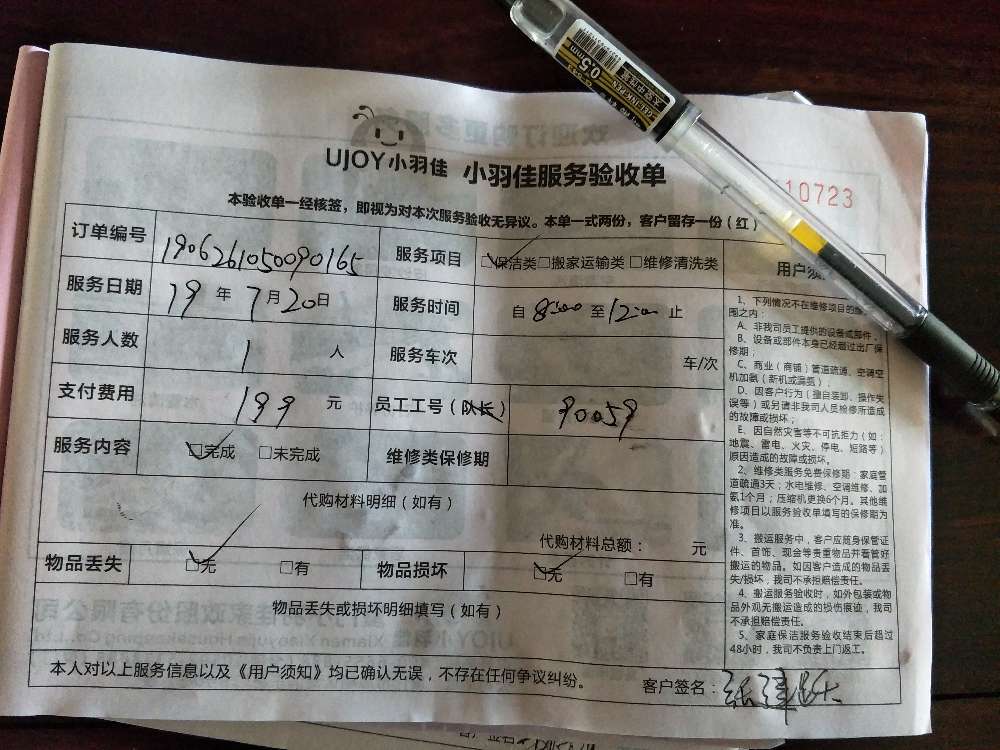 UJOY小羽佳 小羽佳服务验收单
10723
本验收单一经核签，即视为对本次服务验收无异议。本单一式两份，客户留存一份（红）
订单编号 1906261050090165 服务项目 □保洁类□搬家运输类□维修清洗类
服务日期 19年7月20日 服务时间 自8:00至12:00止
服务人数 1人 服务车次 车/次
支付费用 199元 员工工号（队长） 90059
服务内容 □完成 □未完成 维修类保修期
代购材料明细（如有）
代购材料总额： 元
物品丢失 □无 □有 物品损坏 □无 □有
物品丢失或损坏明细填写（如有）
本人对以上服务信息以及《用户须知》均已确认无误，不存在任何争议纠纷。
客户签名：
用户须
1、下列情况不在维修项目的
围之内：
A、非我司员工提供的设备或部件，
B、设备或部件本身已经超过出厂保
修期；
C、商业（商铺）管道疏通、空调空
机加氨（新机或漏氨）；
D、因客户行为（擅自装卸、操作失
误等）或另请非我司人员检修所造成
的故障或损坏；
E、因自然灾害等不可抗拒力（如：
地震、雷电、火灾、停电、短路等）
原因造成的故障或损坏。
2、维修类服务免费保修期：家庭管
道疏通3天；水电维修、空调维修、加
氨1个月；压缩机更换6个月。其他维
修项目以服务验收单填写的保修期为
准。
3、搬运服务中，客户应随身保管证
件、首饰、现金等贵重物品并看管好
搬运的物品。如因客户造成的物品丢
失/损坏，我司不承担赔偿责任。
4、搬运服务验收时，如外包装或物
品外观无搬运造成的损伤痕迹，我司
不承担赔偿责任。
5、家庭保洁服务验收结束后超过
48小时，我司不负责上门返工。
0.5mm